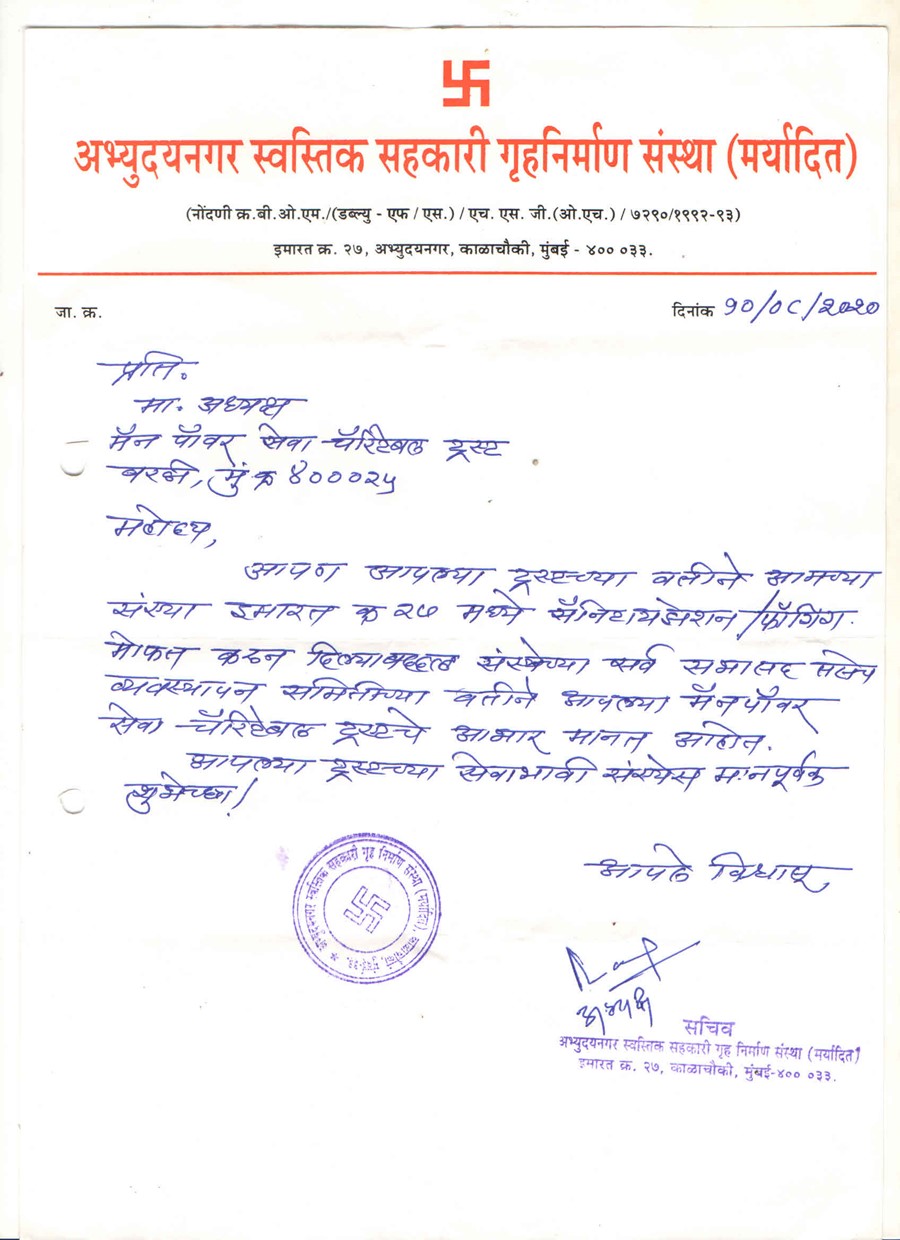 अभ्युदयनगर स्वस्तिक सहकारी गृहनिर्माण संस्था (मर्यादित)
(नोंदणी क्र.बी.ओ.एम./(डब्ल्यु - एफ / एस.) / एच. एस. जी.(ओ.एच.) / ७२९०/१९९२-९३)
इमारत क्र. २७, अभ्युदयनगर, काळाचौकी, मुंबई - ४०० ०३३.
जा. क्र.
दिनांक १०/०८/२०२०
प्रति.
मा. अध्यक्ष
मॅन पॉवर सेवा चॅरिटेबल ट्रस्ट
वरळी, मुं क्र ४०००२५
महोदय,
आपण आपल्या ट्रस्टच्या वतीने आमच्या
संस्था इमारत क्र २७ मध्ये सॅनिटायझेशन/फॉगिंग.
मोफत करुन दिल्याबद्दल संस्थेच्या सर्व सभासद तसेच
व्यवस्थापन समितीच्या वतीने आपल्या मॅनपॉवर
सेवा चॅरिटेबल ट्रस्टचे आभार मानत आहोत.
आपल्या ट्रस्टच्या सेवाभावी संस्थेस मनःपूर्वक
शुभेच्छा!
आपले विश्वासू,
अभ्युदयनगर स्वस्तिक सहकारी गृह निर्माण संस्था (मर्यादित), काळाचौकी, मुंबई-३३.
अध्यक्ष
सचिव
अभ्युदयनगर स्वस्तिक सहकारी गृह निर्माण संस्था (मर्यादित)
इमारत क्र. २७, काळाचौकी, मुंबई-४०० ०३३.